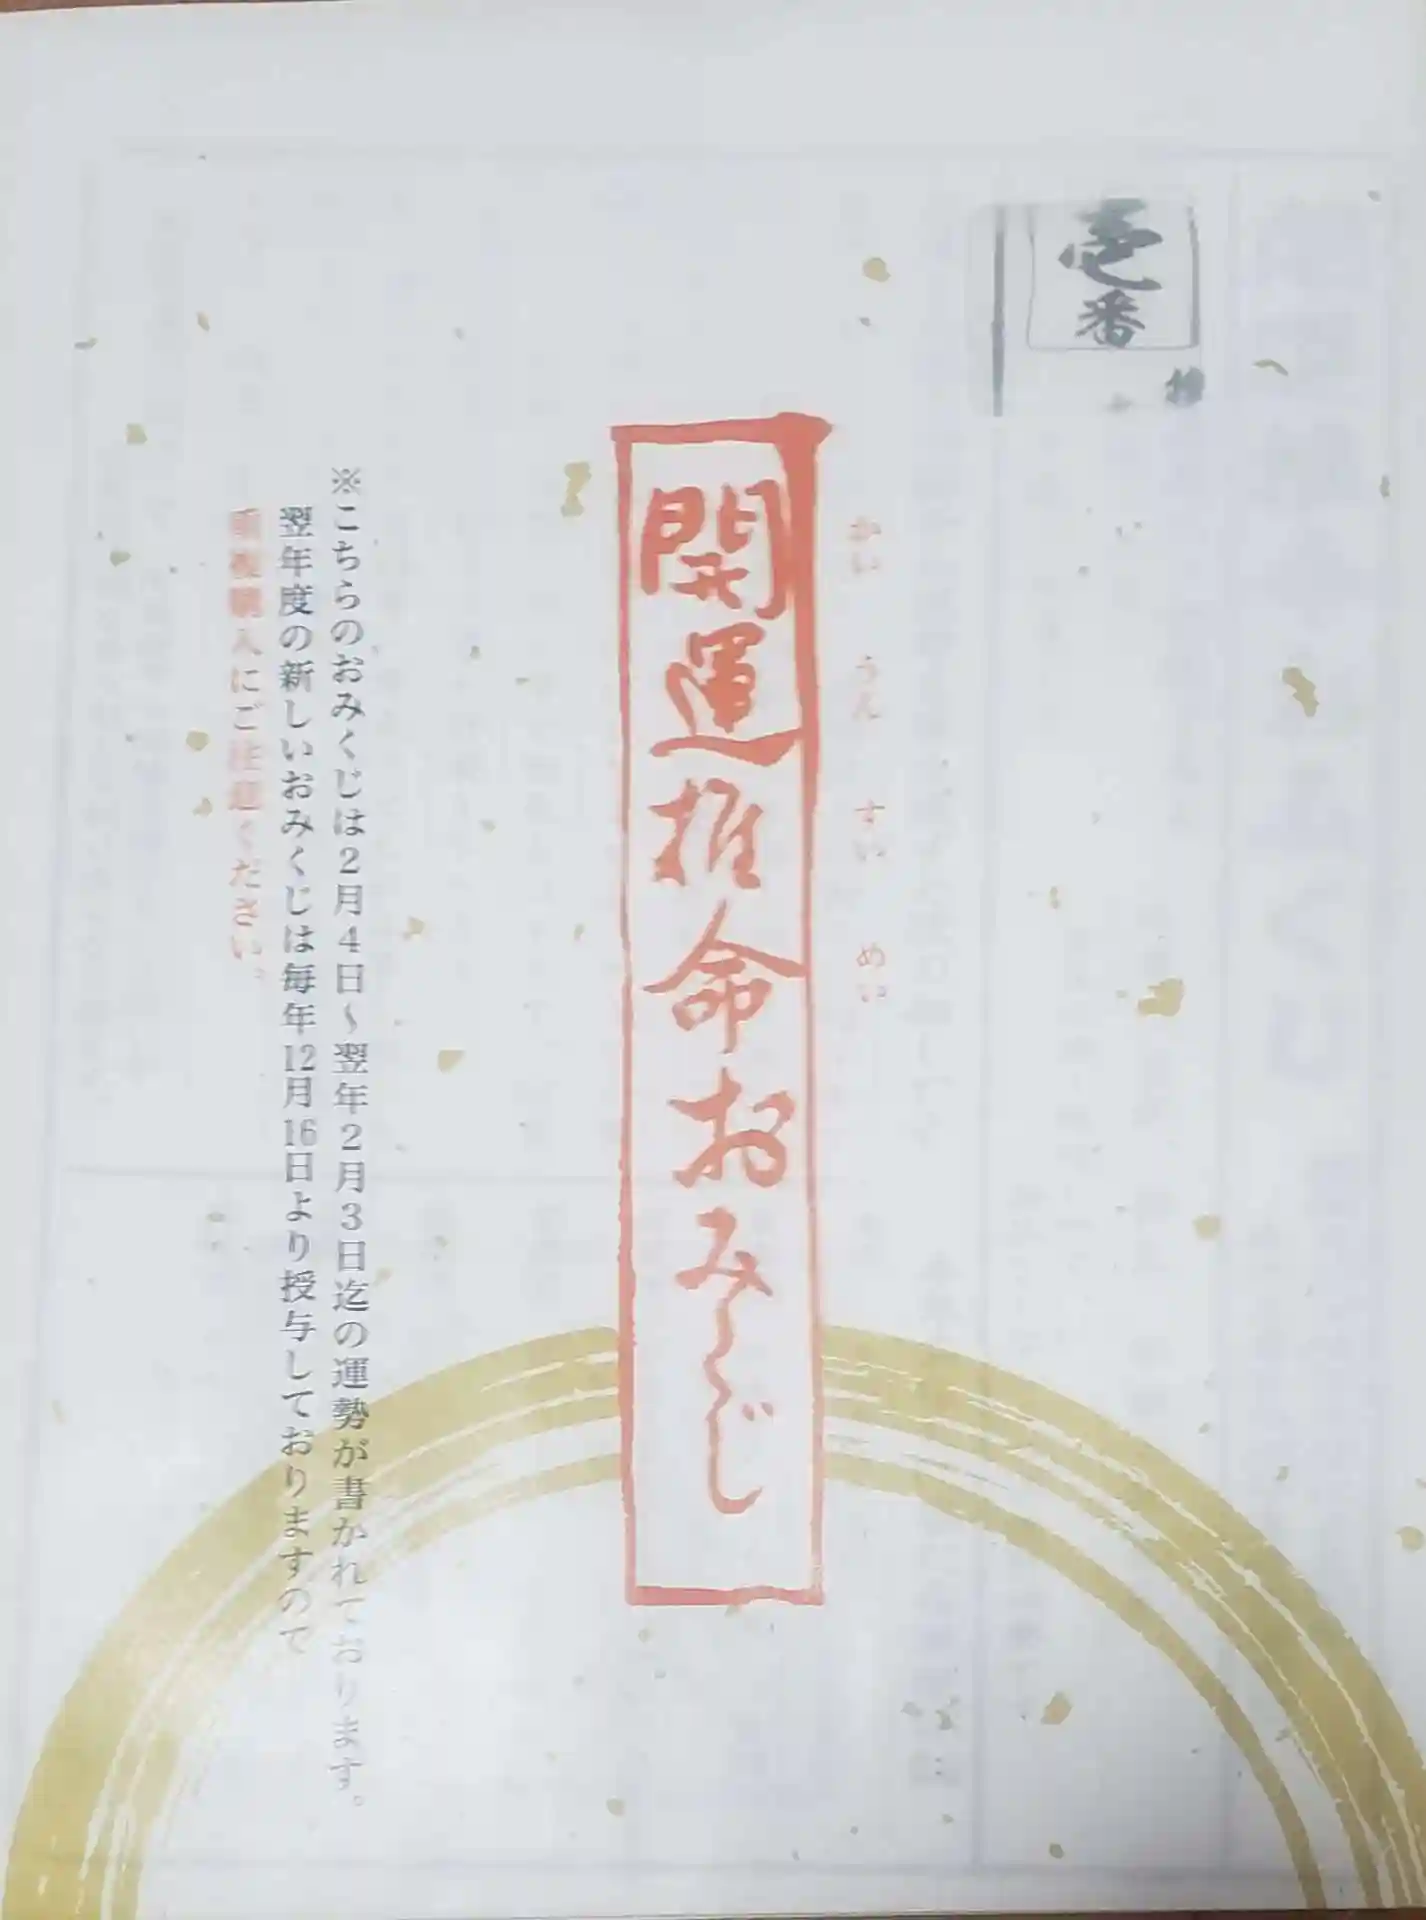 壱番
かいうんすいめい
開運推命おみくじ
※こちらのおみくじは２月４日～翌年２月３日迄の運勢が書かれております。
翌年度の新しいおみくじは毎年12月16日より授与しておりますので
重複購入にご注意ください。